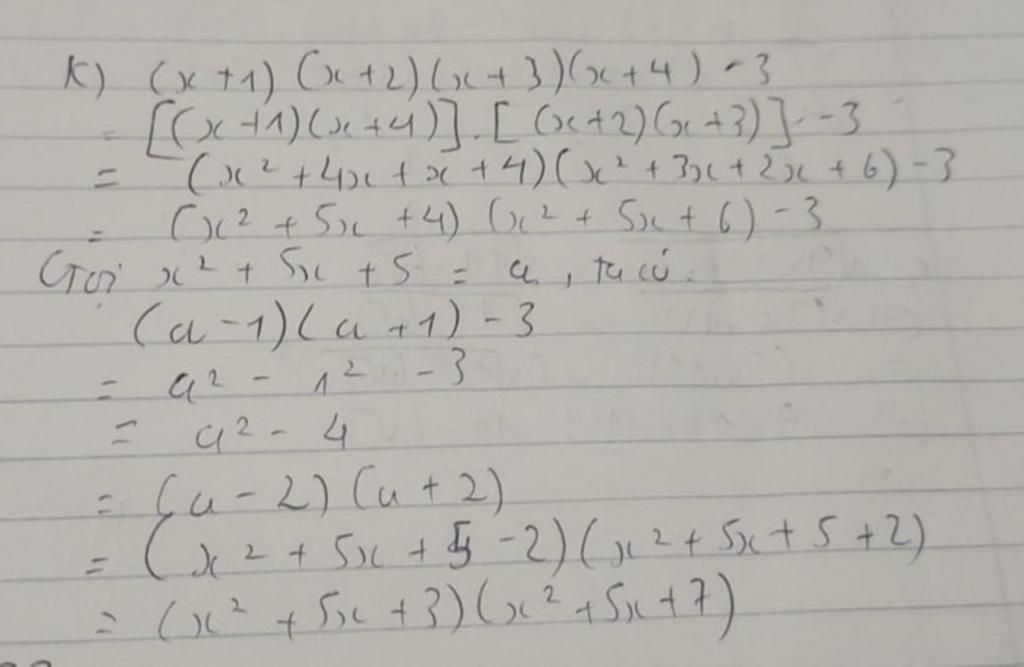 K) (x+1) (x+2)(x+3)(x+4) - 3
= [(x+1)(x+4)].[(x+2)(x+3)] - 3
= (x² + 4x + x + 4)(x² + 3x + 2x + 6) - 3
= (x² + 5x + 4) (x² + 5x + 6) - 3
Gọi x² + 5x + 5 = a, ta có
(a - 1)(a + 1) - 3
= a² - 1² - 3
= a² - 4
= (a - 2)(a + 2)
= (x² + 5x + 5 - 2)(x² + 5x + 5 + 2)
= (x² + 5x + 3)(x² + 5x + 7)